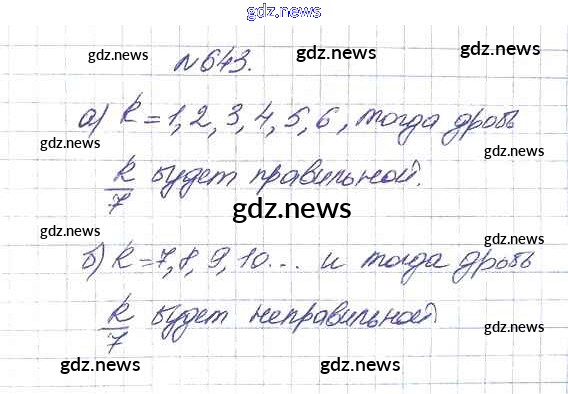 gdz.news
gdz.news
N 643.
gdz.news
gdz.news
gdz.news
а) k = 1, 2, 3, 4, 5, 6, тогда дробь
gdz.news
gdz.news
k/7 будет правильной.
gdz.news
gdz.news
б) k = 7, 8, 9, 10... и тогда дробь
gdz.news
k/7 будет неправильной
gdz.news
gdz.news
gdz.news
gdz.news